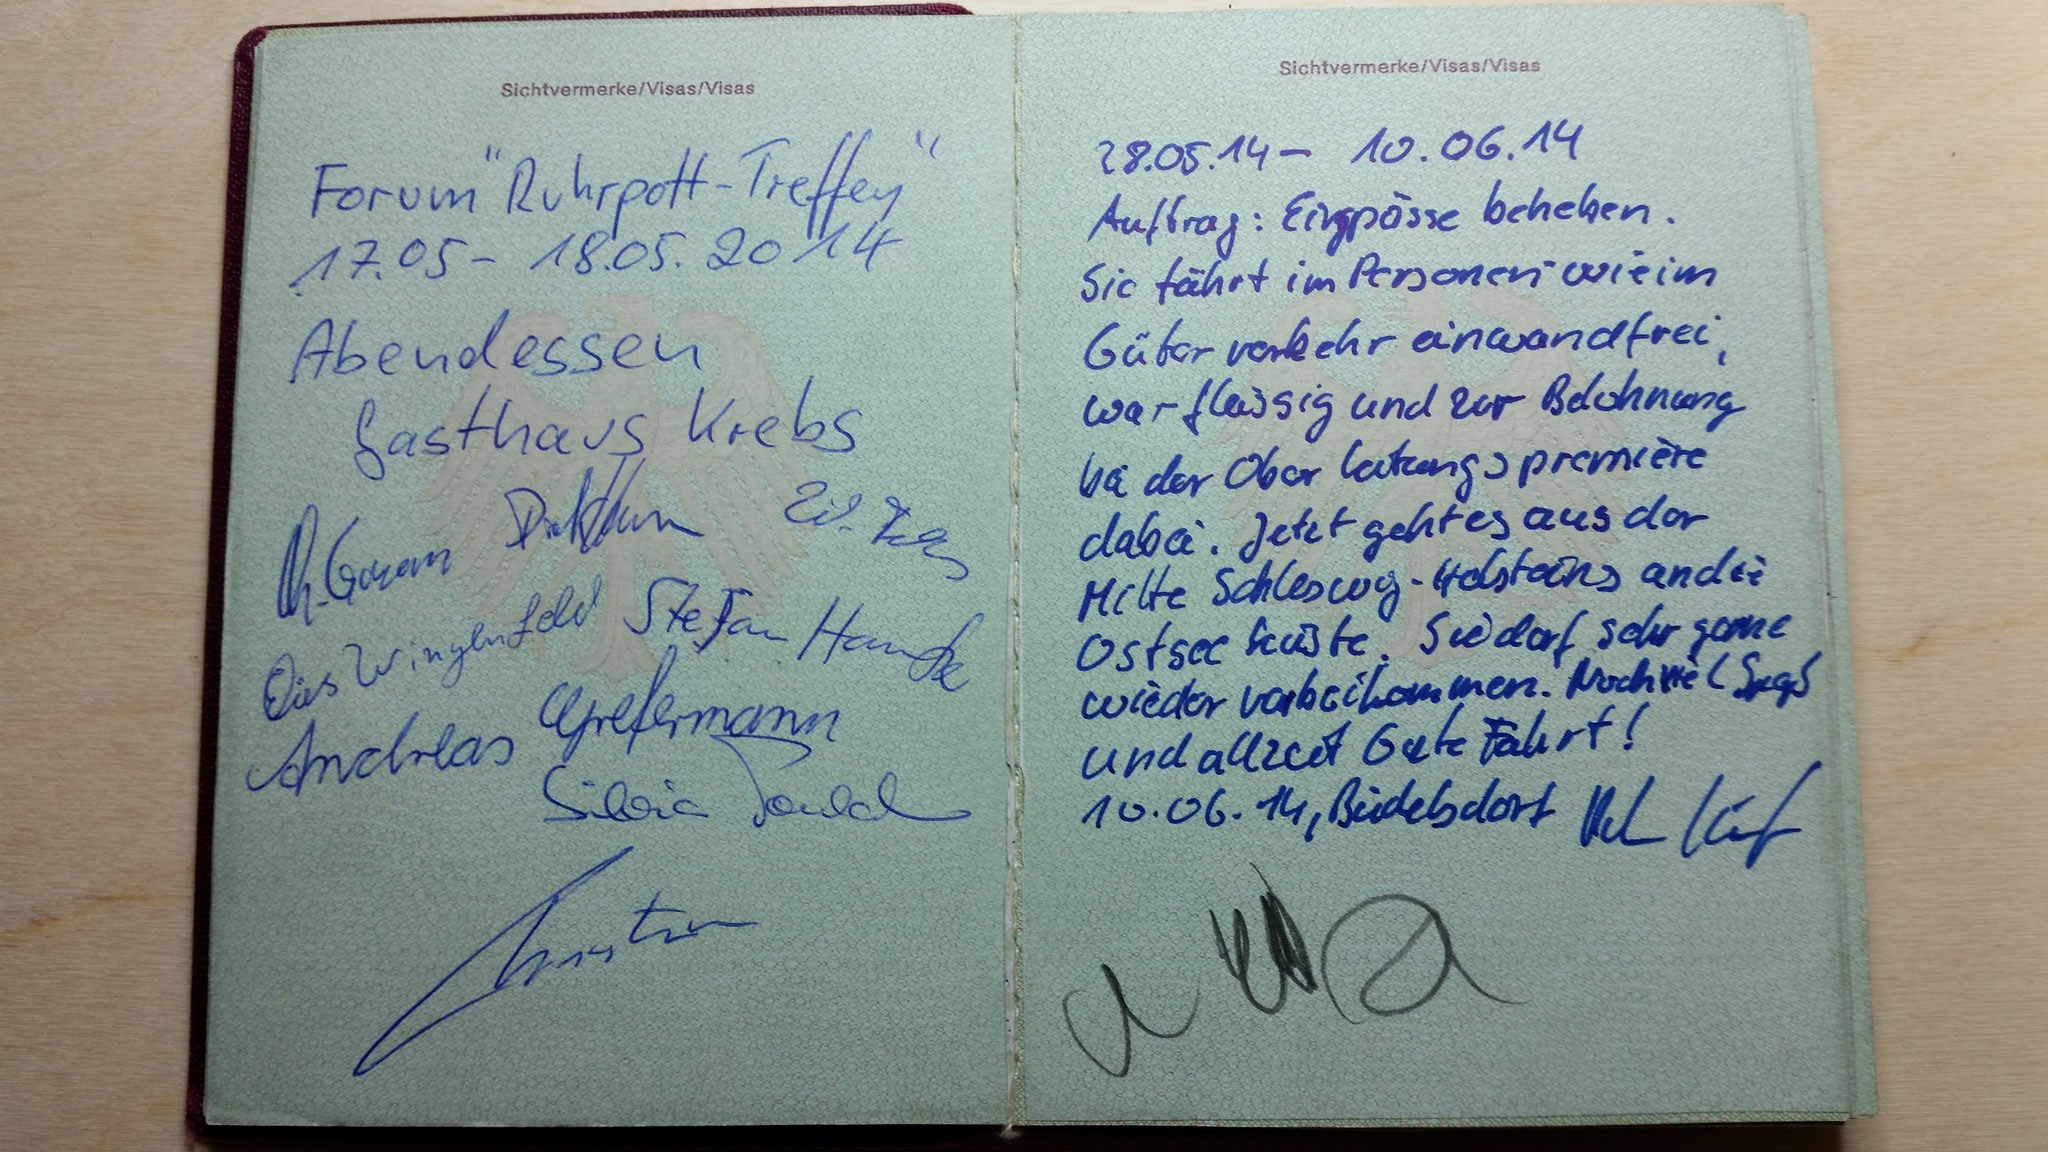 Sichtvermerke/Visas/Visas
Forum "Ruhrpott-Treffen"
17.05 - 18.05.2014
Abendessen
Gasthaus Krebs
Stefan Hamke
Andreas Grefermann
Silvia
Sichtvermerke/Visas/Visas
28.05.14 - 10.06.14
Auftrag: Eingpässe beheben.
Sie fährt im Personen- wie im
Güterverkehr einwandfrei,
war fleissig und zur Belohnung
bei der Oberleitungspremière
dabei. Jetzt geht es aus der
Mitte Schleswig-Holsteins an die
Ostseeküste. Sie darf sehr gerne
wieder vorbeikommen. Noch viel Spaß
und allzeit Gute Fahrt!
10.06.14, Büdelsdorf